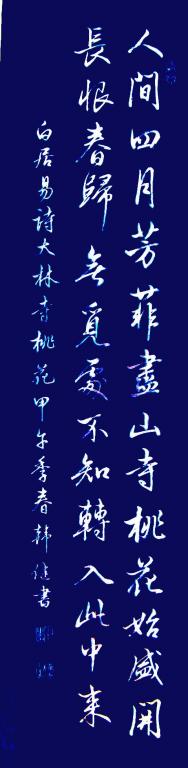 人間四月芳菲盡山寺桃花始盛開
長恨春歸無覓處不知轉入此中来
白居易詩大林寺桃花甲午季春韓健書